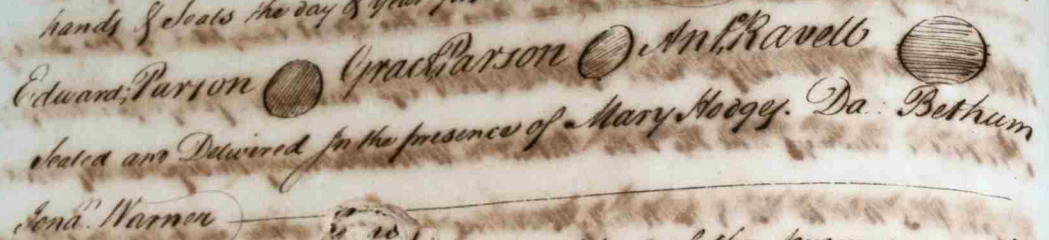 hands & Seals the day & year
Edward Parson Grace Parson Ant. Ravell
Sealed and Delivered In the presence of Mary Hodges. Da: Bethum
Jona.n Warner